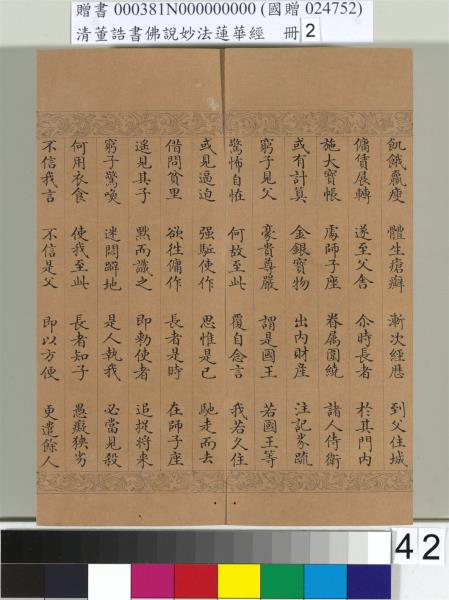 贈書 000381N000000000 (國贈 024752)
清董誥書佛說妙法蓮華經 冊 2
飢餓羸瘦 體生瘡癬 漸次經歷 到父住城
傭賃展轉 遂至父舍 尒時長者 於其門內
施大寶帳 處師子座 眷属圍繞 諸人侍衛
或有計算 金銀寶物 出內財產 注記券疏
窮子見父 豪貴尊嚴 謂是國王 若國王等
驚怖自恠 何故至此 覆自念言 我若久住
或見逼迫 强驅使作 思惟是已 馳走而去
借問貧里 欲徃傭作 長者是時 在師子座
遥見其子 黙而識之 即勅使者 追捉将来
窮子驚喚 迷悶躃地 是人執我 必當見殺
何用衣食 使我至此 長者知子 愚癡狹劣
不信我言 不信是父 即以方便 更遣餘人
42